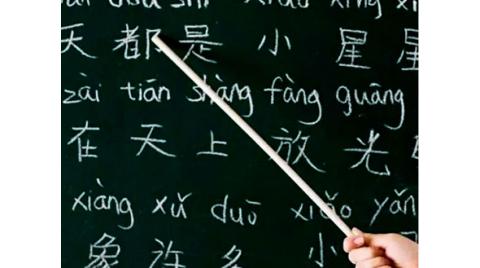 dou shi xiao xing xi
天 都 是 小 星 星
zài tiān shàng fàng guāng
在 天 上 放 光
xiàng xǔ duō xiǎo yǎn
象 许 多 小